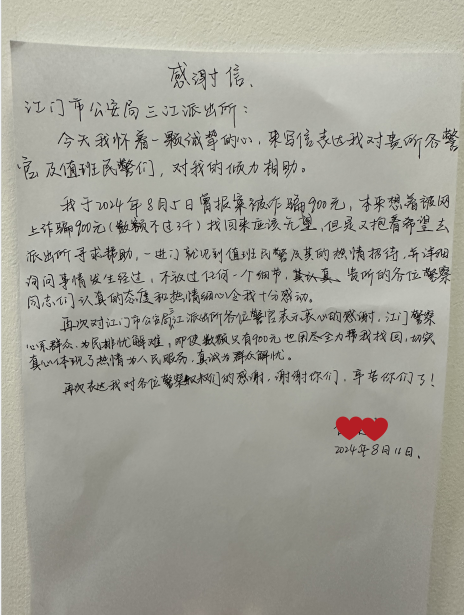 感谢信.
江门市公安局三江派出所:
今天我怀着一颗诚挚的心,来写信表达我对贵所各警
官及值班民警们,对我的倾力相助.
我于2024年8月5日曾报案被诈骗900元,本来想着被网
上诈骗900元(数额不过3千)找回来应该无望,但是又抱着希望去
派出所寻求帮助,一进门就见到值班民警及其的热情招待,并详细
询问事情发生经过,不放过任何一个细节,其认真.贵所的各位警察
同志们认真的态度和热情细心令我十分感动.
再次对江门市公安局三江派出所各位警官表示衷心的感谢,江门警察
心系群众,为民排忧解难,即使数额只有900元也用尽全力帮我找回,切实
真心体现了热情为人民服务,真诚为群众解忧.
再次表达我对各位警察叔叔们的感谢,谢谢你们,辛苦你们了!
2024年8月16日.